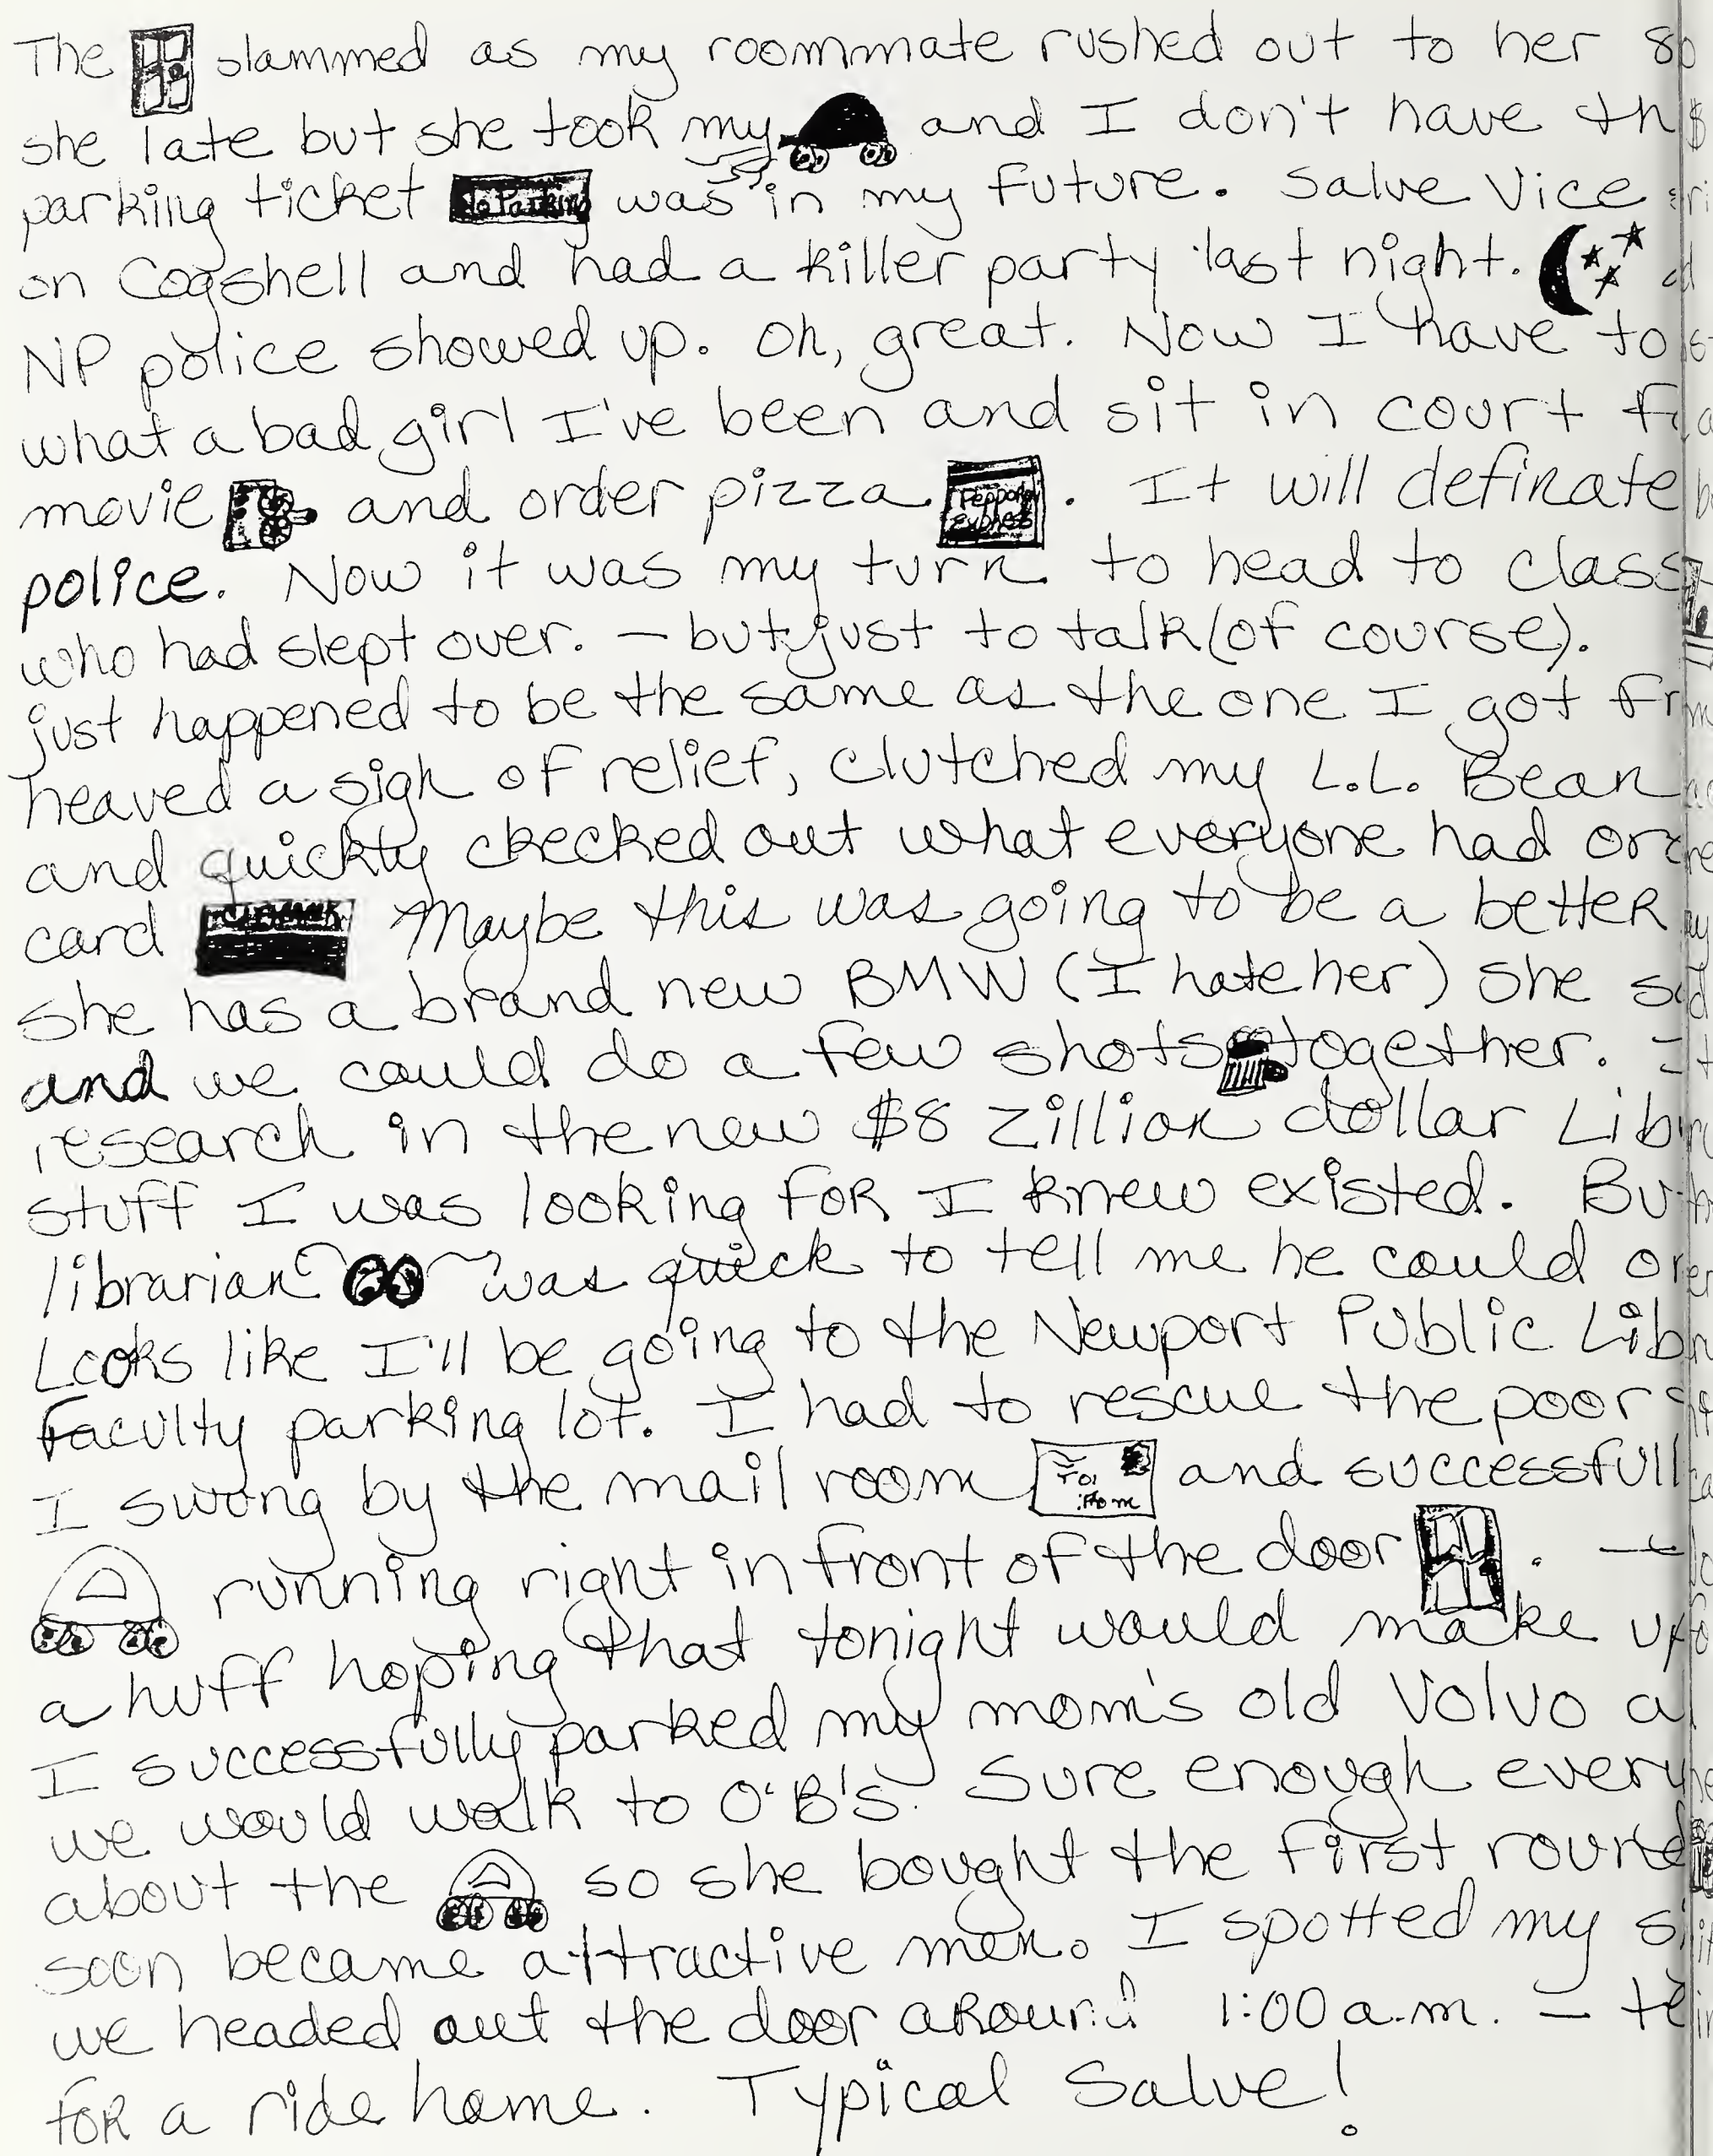 The slammed as my roommate rushed out to her
she late but she took my and I don't have
parking ticket No Parking was in my future. Salve Vice
on Cogshell and had a killer party last night.
NP police showed up. Oh, great. Now I have to
what a bad girl I've been and sit in court
movie and order pizza Pepperoni Express. It will definate
police. Now it was my turn to head to class
who had slept over. – but just to talk (of course).
just happened to be the same as the one I got
heaved a sigh of relief, clutched my L.L. Bean
and quickly checked out what everyone had
card Maybe this was going to be a better
she has a brand new BMW (I hate her) she
and we could do a few shots together.
research in the new $8 zillion dollar Lib
stuff I was looking for I knew existed.
librarian was quick to tell me he could
Looks like I'll be going to the Newport Public Lib
Faculty parking lot. I had to rescue the poor
I swung by the mail room To: from and successfull
running right in front of the door.
a huff hoping that tonight would make up
I successfully parked my mom's old Volvo
we would walk to O'B's. Sure enough every
about the so she bought the first round
soon became attractive men. I spotted my
we headed out the door around 1:00 a.m. –
for a ride home. Typical Salve!